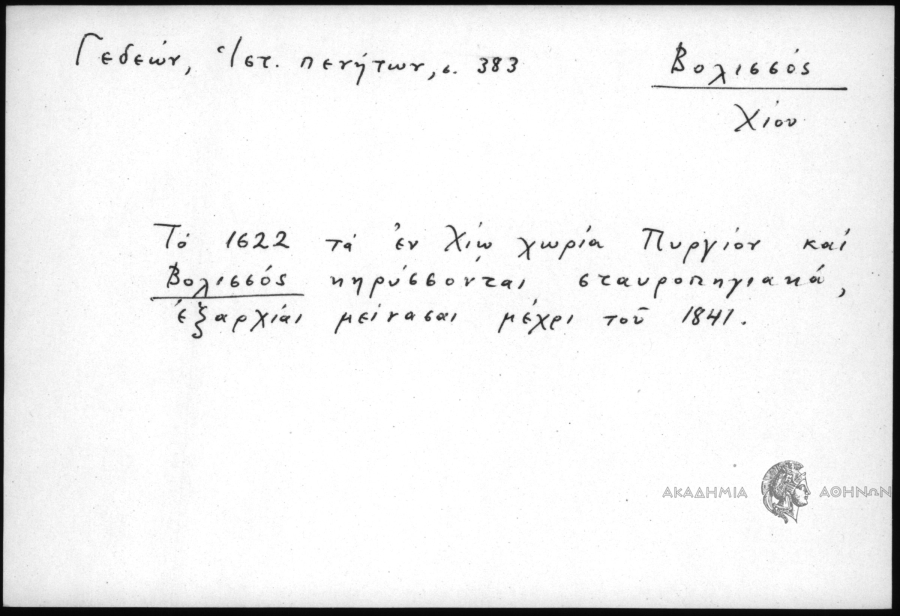 Γεδεών, Ἱστ. πενήτων, σ. 383
Βολισσός
Χίου
Τό 1622 τά ἐν Χίῳ χωρία Πυργίον καί
Βολισσός κηρύσσονται σταυροπηγιακά,
ἐξαρχίαι μείνασαι μέχρι τοῦ 1841.
ΑΚΑΔΗΜΙΑ ΑΘΗΝΩΝ